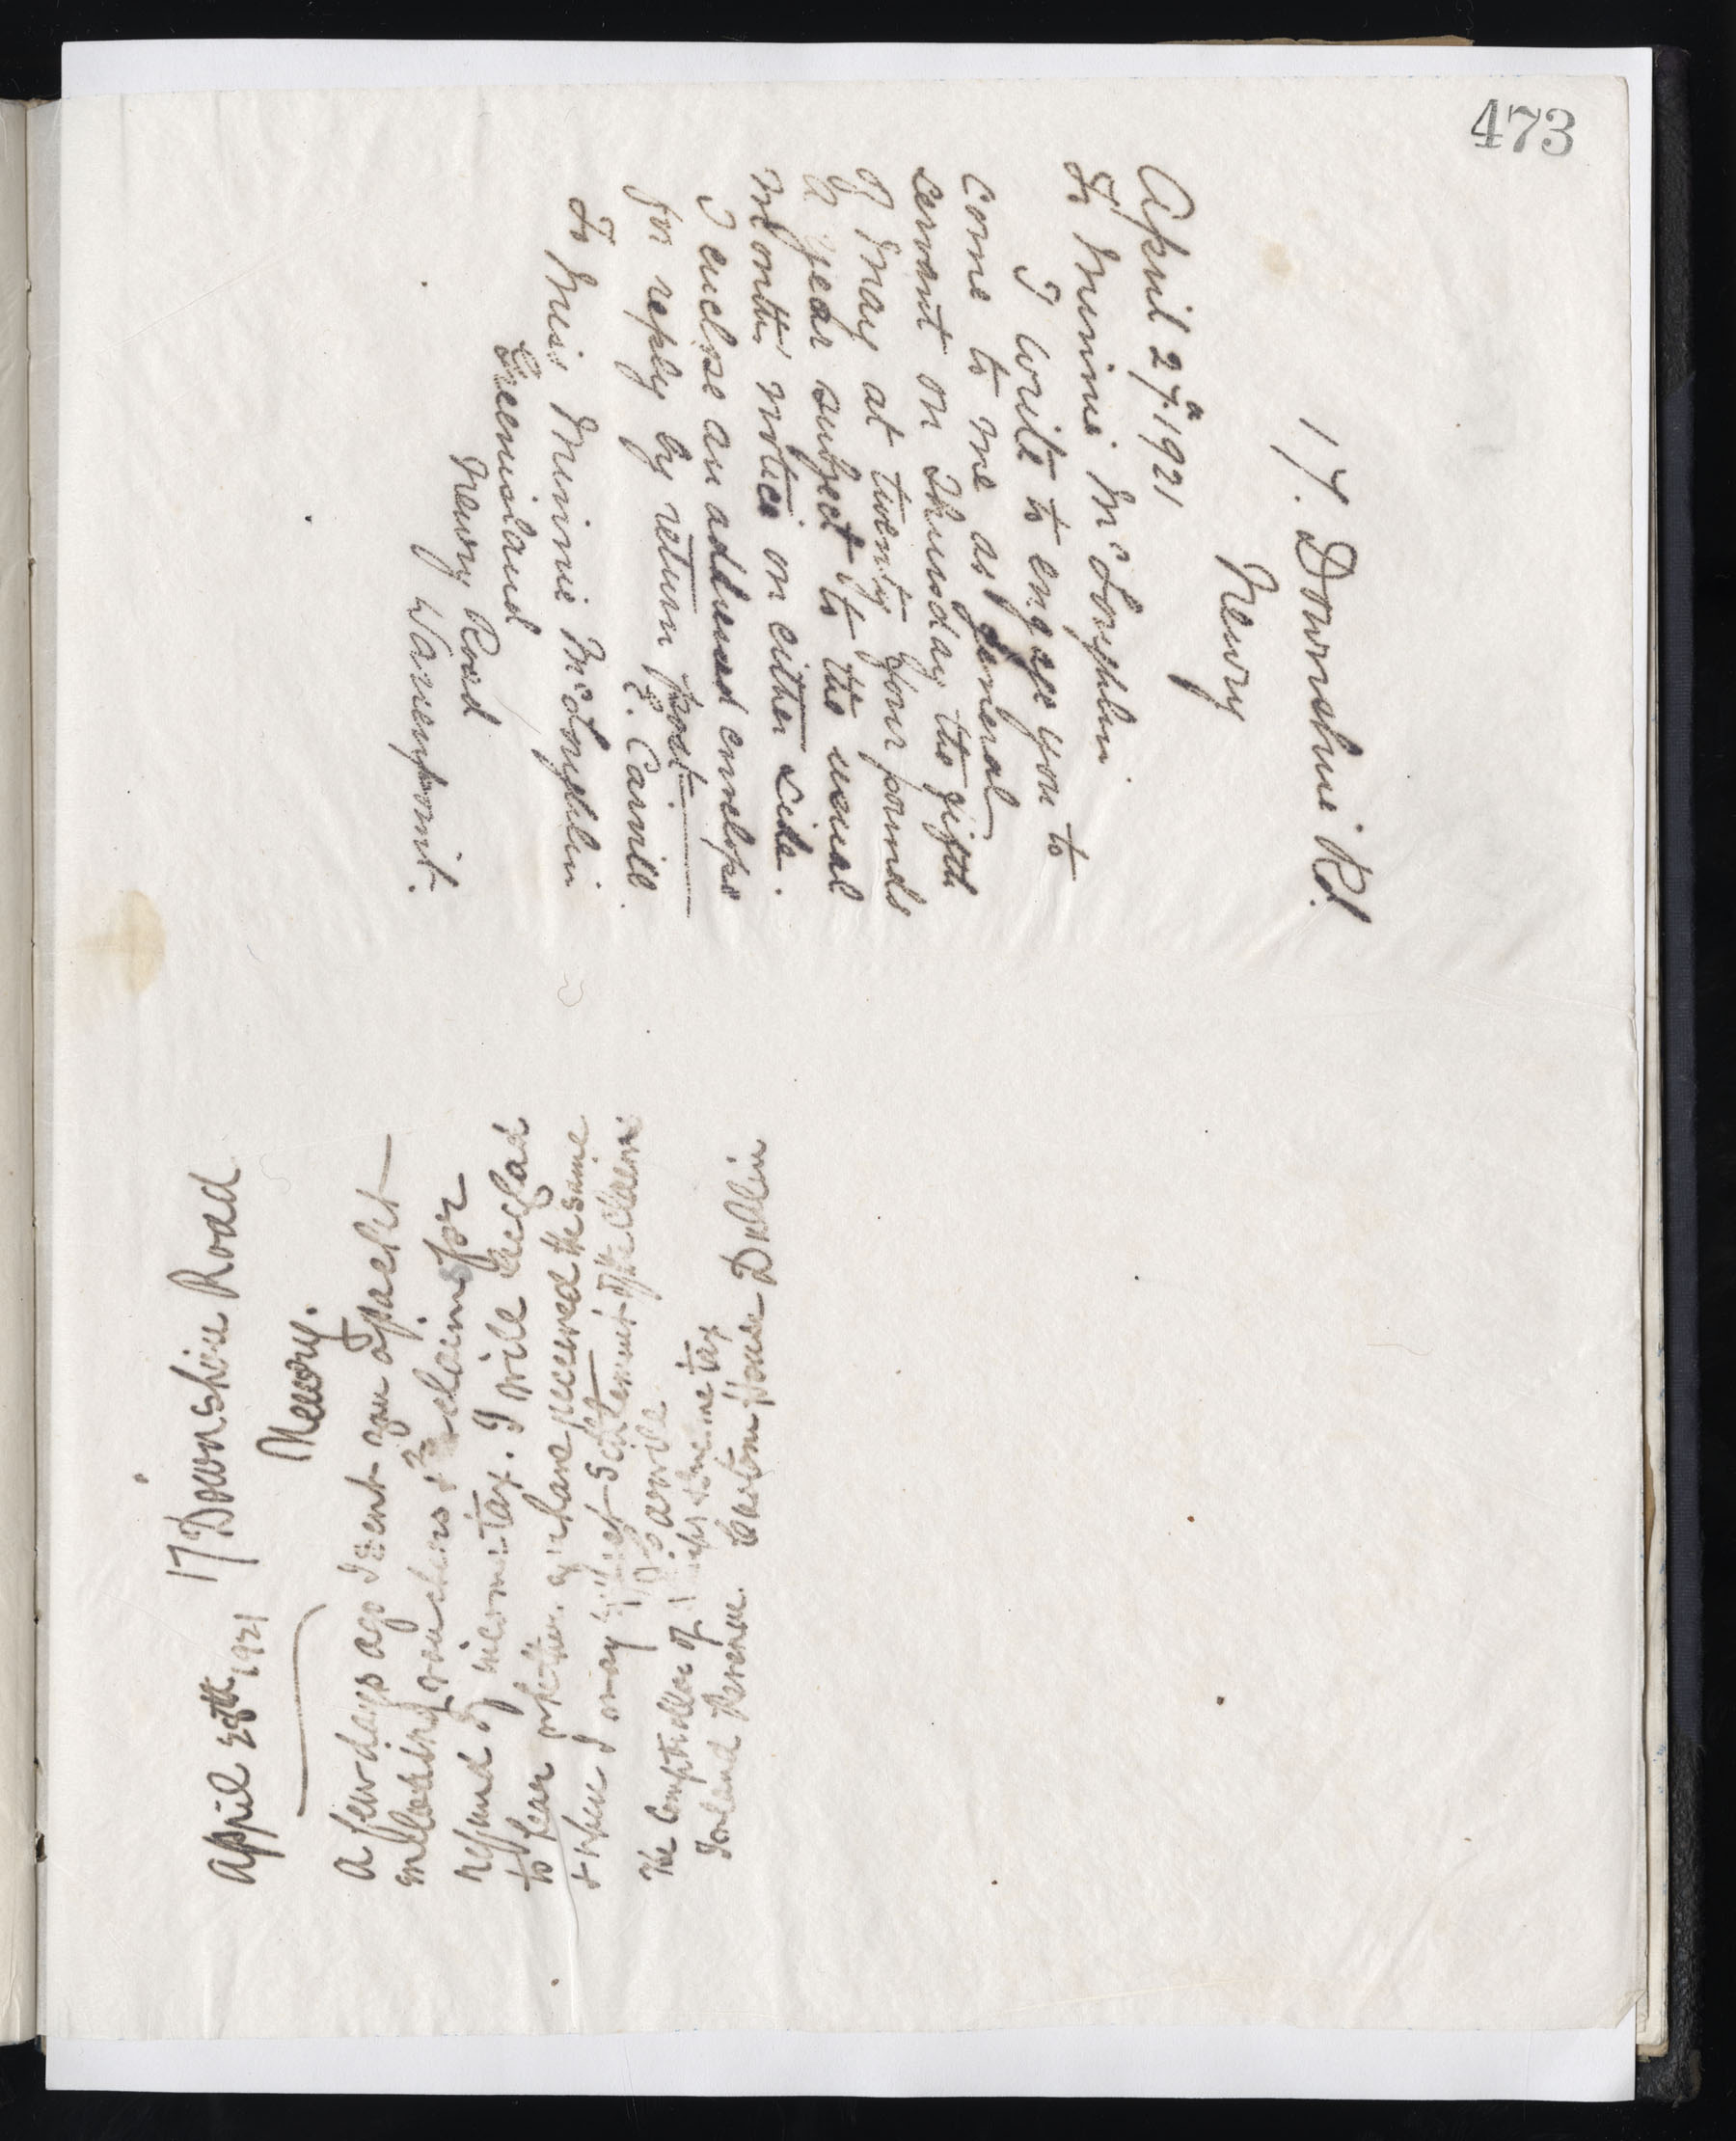 473
17. Downshire Rd.
Newry
April 27th 1921
To Minnie McLoughlin
I write to engage you to
come to me as general
servant on Thursday the fifth
of May at twenty four pounds
a year subject to the usual
months notice on either side.
I enclose an addressed envelope
for reply by return post
E. Carvill.
To Miss Minnie McLoughlin
Greenisland
Newry Road
Warrenpoint.
April 28th 1921 17 Downshire Road
Newry.
A few days ago I sent you a packet
enclosing vouchers & claims for
refund of income tax. I will be glad
to hear whether you have received the same
& when I may get settlement of the claim
Carvill
The Comptroller of income tax
Inland Revenue. Custom House Dublin